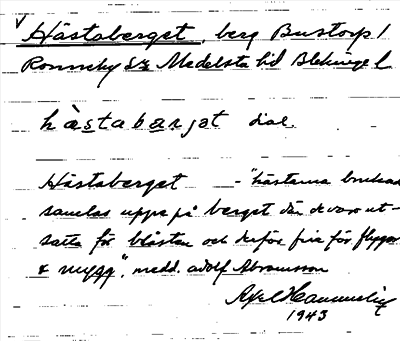 v Hästaberget, berg Bustorp 1
Ronneby sn Medelsta hd Blekinge l
hàstabærjət dial.
Hästaberget – "hästarna brukade
samlas uppe på berget där de voro ut-
satta för blåsten och därför fria för flugor
& mygg", medd. Adolf Abramsson
Axel
1943